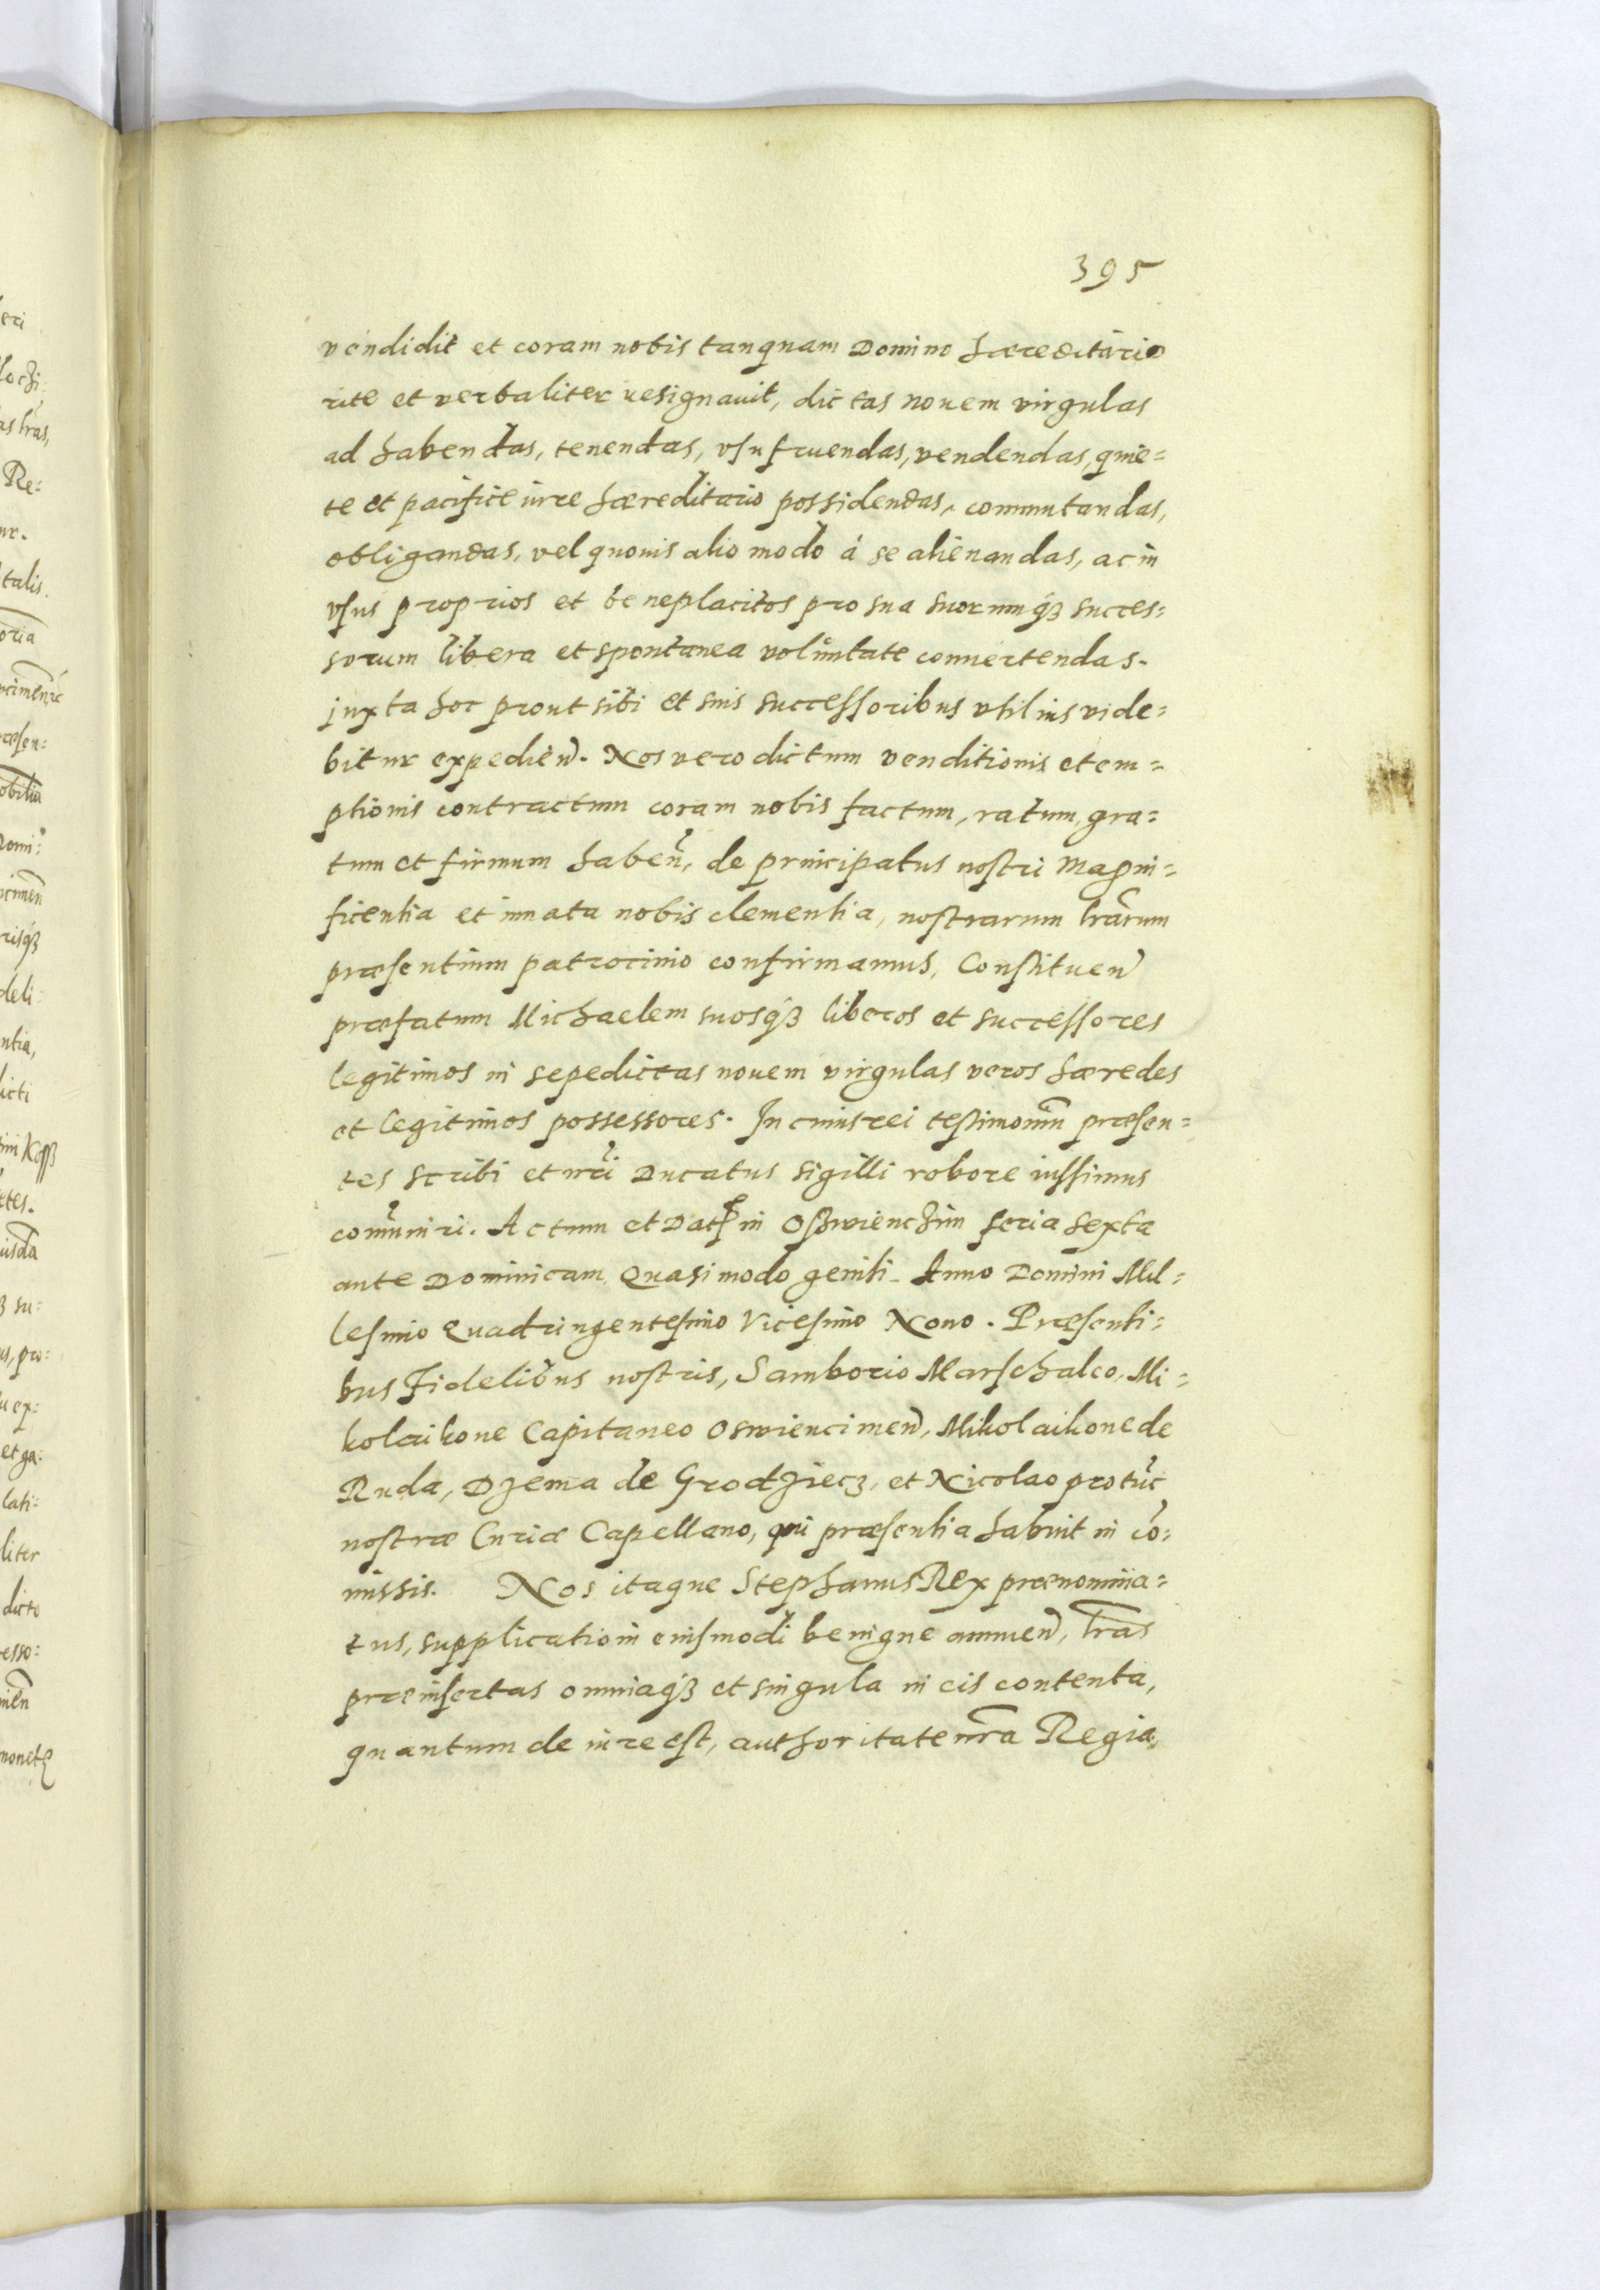 395
vendidit et coram nobis tanquam Domino hæreditario
rite et verbaliter resignauit, dictas nouem virgulas
ad habendas, tenendas, vsufruendas, vendendas, quie=
te et pacifice iure hæreditario possidendas, commutandas,
obligandas, vel quouis alio modo á se alienandas, ac in
vsus proprios et beneplacitos pro sua suorumq́ꝫ succes=
sorum libera et spontanea voluntate conuertendas.
juxta hoc prout sibi et suis successoribus vtilius vide=
bitur expedien̄. Nos vero dictum venditionis et em=
ptionis contractum coram nobis factum, ratum, gra=
tum et firmum haben̄, de principatus nostri magni=
ficentia et innata nobis clementia, nostrarum lrārum
præsentium patrocinio confirmamus, Constituen̄
præfatum Michaelem suosq́ꝫ liberos et successores
legitimos in sepedictas nouem virgulas veros hæredes
et legitimos possessores. In cuius rei testimoniū præsen=
tes scribi et nr̄i Ducatus sigilli robore iussimus
com̄uniri. Actum et Datꝭ in Oswienczim feria sexta
ante Dominicam Quasimodo geniti. Anno Domini Mil=
lesimo Quadringentesimo Vicesimo Nono. Præsenti=
bus Fidelibus nostris, Samborio Marschalco, Mi=
kolaikone Capitaneo Oswiencimen̄, Mikolaikone de
Ruda, Dzema de Grodziecz, et Nicolao pro tūc
nostræ Curiæ Capellano, qui præsentia habuit in cō=
missis. Nos itaque Stephanus Rex prænomina=
tus, supplicationi eiusmodi benigne annuen̄, lrās
præinsertas omniaq́ꝫ et singula in eis contenta,
quantum de iure est, authoritate nrā Regia,